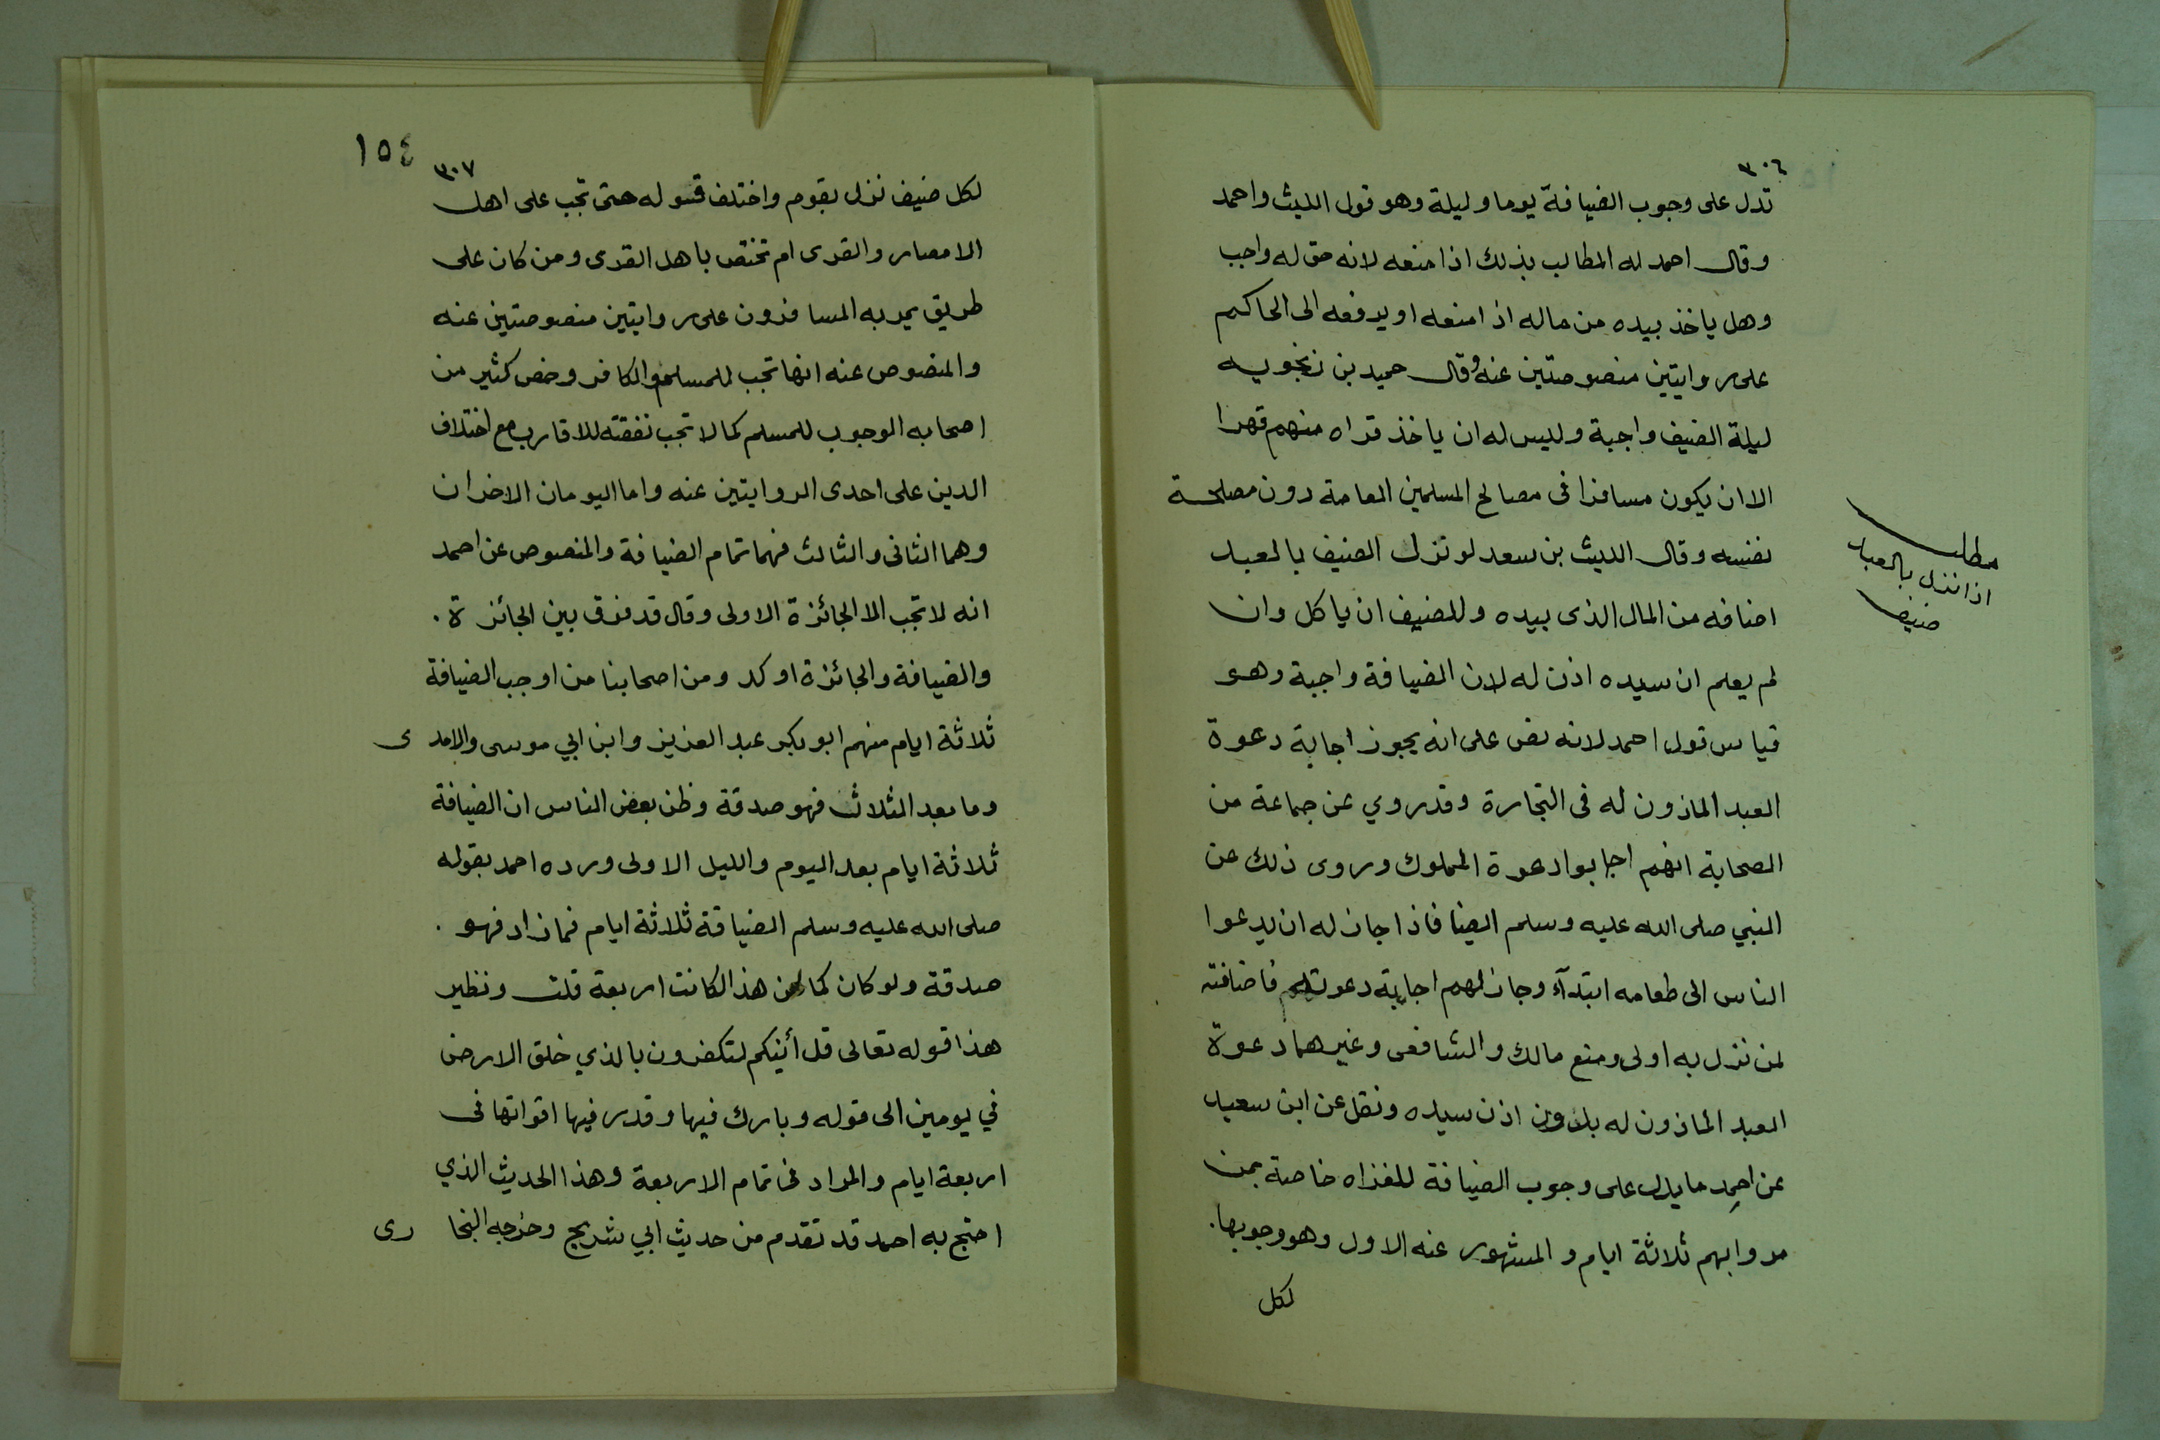 ٣٠٦
تدل على وجوب الضيافة يوما وليلة وهو قول الليث واحمد
وقال احمد له المطالب بذلك اذا منعه لانه حق له واجب
وهل ياخذ بيده من ماله اذا منعه او يرفعه الى الحاكم
على روايتين منصوصتين عنه وقال حميد بن زنجويه
ليلة الضيف واجبة وليس له ان ياخذ قراه منهم قهرا
الا ان يكون مسافرا فى مصالح المسلمين العامة دون مصلحة
نفسه وقال الليث بن سعد لو نزل الضيف بالعبد
اضافه من المال الذى بيده وللضيف ان ياكل وان
لم يعلم ان سيده اذن له لان الضيافة واجبة وهو
قياس قول احمد لانه نص على انه يجوز اجابة دعوة
العبد الماذون له فى التجارة وقد روي عن جماعة من
الصحابة انهم اجابوا دعوة المملوك وروى ذلك عن
النبي صلى الله عليه وسلم ايضا فاذا جاز له ان يدعوا
الناس الى طعامه ابتدآء وجاز لهم اجابة دعوتهم فاضافته
لمن نزل به اولى ومنع مالك والشافعى وغيرهما دعوة
العبد الماذون له بدون اذن سيده ونقل عن ابن سعيد
عن احمد ما يدل على وجوب الضيافة للغزاه خاصة بمن
مروا بهم ثلاثة ايام والمشهور عنه الاول وهو وجوبها.
لكل
مطلب
اذا نزل بالعبد
ضيف
١٥٤
٣٠٧
لكل ضيف نزل بقوم واختلف قوله حتى تجب على اهل
الامصار والقرى ام تختص باهل القرى ومن كان على
طريق يمر به المسافرون على روايتين منصوصتين عنه
والمنصوص عنه انها تجب للمسلم والكافر وخص كثير من
اصحابه الوجوب للمسلم كما لا تجب نفقته للاقارب مع اختلاف
الدين على احدى الروايتين عنه واما اليومان الاخران
وهما الثانى والثالث فهما تمام الضيافة والمنصوص عن احمد
انه لا تجب الا الجائزة الاولى وقال قد فرق بين الجائزة .
والضيافة والجائزة اوكد ومن اصحابنا من اوجب الضيافة
ثلاثة ايام منهم ابو بكر عبد العزيز وابن ابي موسى والامدى
وما بعد الثلاث فهو صدقة وظن بعض الناس ان الضيافة
ثلاثة ايام بعد اليوم والليل الاولى ورده احمد بقوله
صلى الله عليه وسلم الضيافة ثلاثة ايام فما زاد فهو .
صدقة ولو كان كما هذا لكانت اربعة قلت ونظير
هذا قوله تعالى قل أئنكم لتكفرون بالذي خلق الارض
في يومين الى قوله وبارك فيها وقدر فيها اقواتها فى
اربعة ايام والمراد فى تمام الاربعة وهذا الحديث الذي
احتج به احمد قد تقدم من حديث ابي شريح وخرجه البخارى